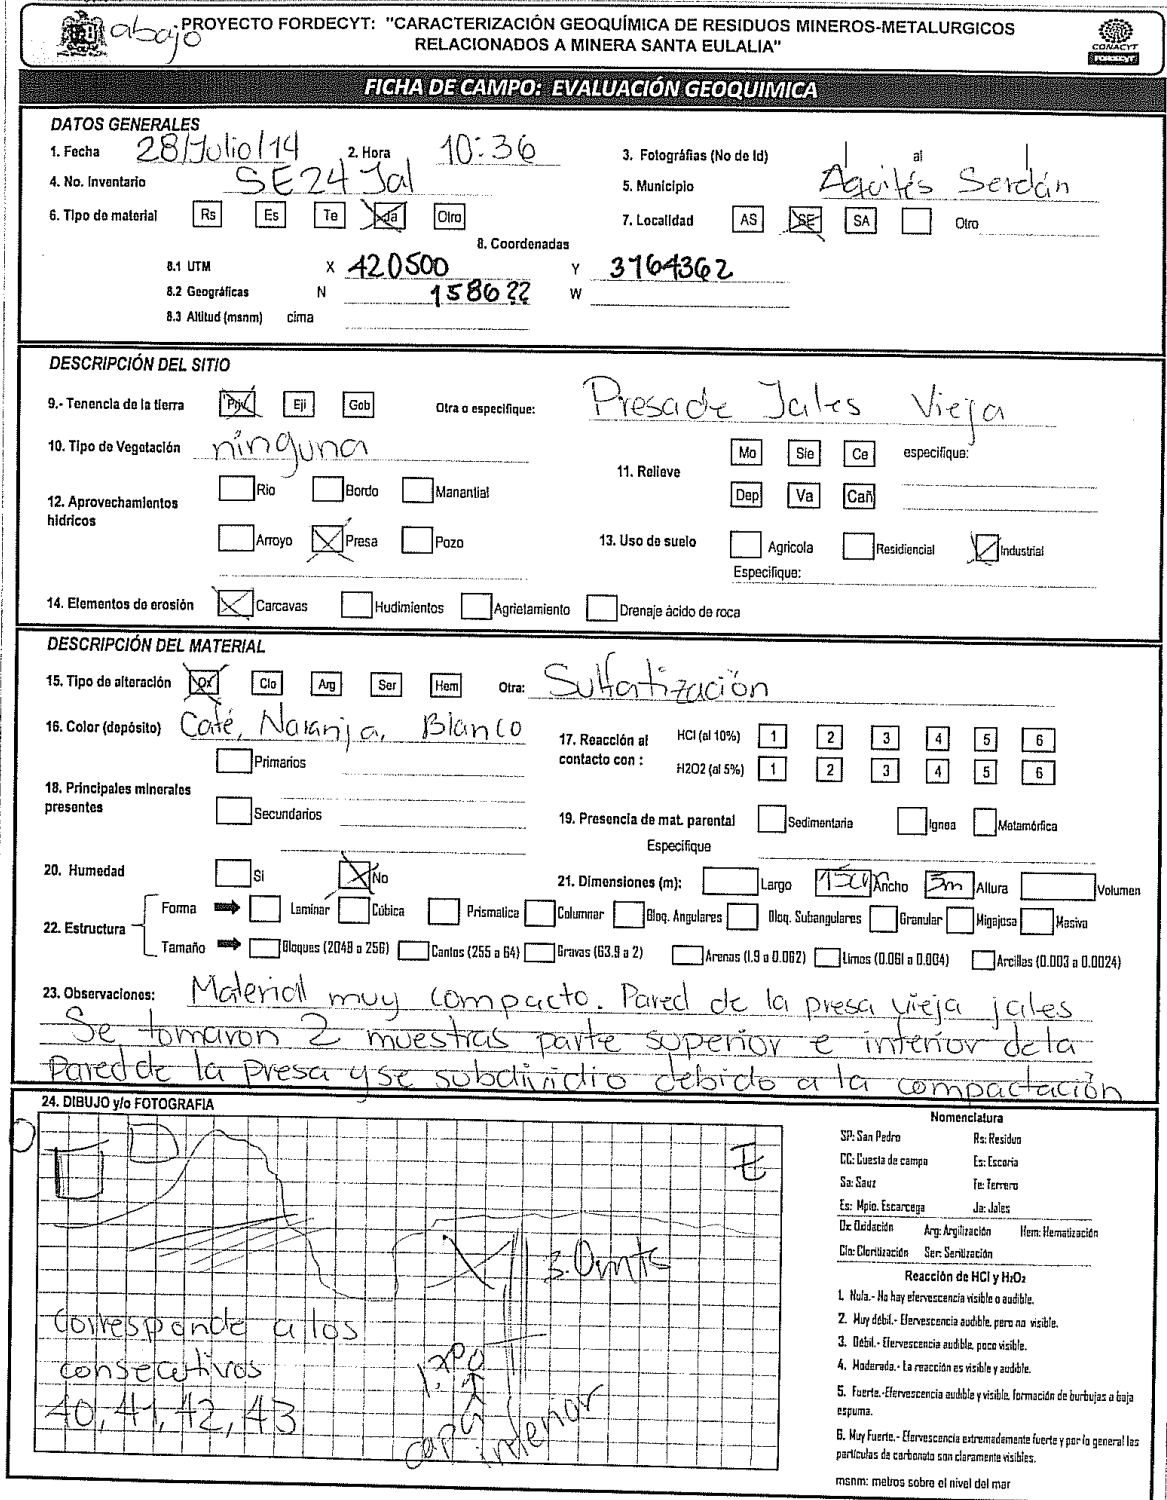 abajo
PROYECTO FORDECYT: "CARACTERIZACIÓN GEOQUÍMICA DE RESIDUOS MINEROS-METALURGICOS
RELACIONADOS A MINERA SANTA EULALIA"
CONACYT
FORDECYT
FICHA DE CAMPO: EVALUACIÓN GEOQUIMICA
DATOS GENERALES
1. Fecha 28/Julio/14 2. Hora 10:36 3. Fotográfias (No de Id) al
4. No. Inventario SE24 Jal 5. Municipio Aquilés Serdán
6. Tipo de material Rs Es Te Ja Otro 7. Localidad AS SE SA Otro
8. Coordenadas
8.1 UTM X 420500 Y 3164362
8.2 Geográficas N 1586?? W
8.3 Altitud (msnm) cima
DESCRIPCIÓN DEL SITIO
9.- Tenencia de la tierra Priv Eji Gob Otra o especifique: Presa de Jales Vieja
10. Tipo de Vegetación ninguna
11. Relieve Mo Sie Ce especifique:
Dep Va Cañ
12. Aprovechamientos hidricos Rio Bordo Manantial
Arroyo Presa Pozo
13. Uso de suelo Agricola Residiencial Industrial
Especifique:
14. Elementos de erosión Carcavas Hudimientos Agrietamiento Drenaje ácido de roca
DESCRIPCIÓN DEL MATERIAL
15. Tipo de alteración Ox Clo Arg Ser Hem Otra: Sulfatización
16. Color (depósito) Café, Naranja, Blanco
17. Reacción al contacto con : HCl (al 10%) 1 2 3 4 5 6
H2O2 (al 5%) 1 2 3 4 5 6
18. Principales minerales presentes Primarios
Secundarios
19. Presencia de mat. parental Sedimentaria Ignea Metamórfica
Especifique
20. Humedad Si No
21. Dimensiones (m): Largo Ancho 3m Altura Volumen
22. Estructura Forma Laminar Cúbica Prismalica Columnar Bloq. Angulares Bloq. Subangulares Granular Migajosa Masiva
Tamaño Bloques (2048 a 256) Cantos (255 a 64) Gravas (63.9 a 2) Arenas (1.9 a 0.062) Limos (0.061 a 0.004) Arcillas (0.003 a 0.0024)
23. Observaciones: Material muy compacto. Pared de la presa vieja jales
Se tomaron 2 muestras parte superior e inferior de la
Pared de la presa y se subdividio debido a la compactación
24. DIBUJO y/o FOTOGRAFIA
E
3.0mts
Corresponde a los
consecutivos
40, 41, 42, 43
capa inferior
Nomenclatura
SP: San Pedro Rs: Residuo
CC: Cuesta de campa Es: Escoria
Sa: Sauz Te: Terrero
Es: Mpio. Escarcega Ja: Jales
Ox: Oxidación Arg: Argilización Hem: Hematización
Clo: Cloritización Ser: Seritización
Reacción de HCl y H₂O₂
1. Nula.- No hay efervescencia visible o audible.
2. Muy débil.- Efervescencia audible, pero no visible.
3. Débil.- Efervescencia audible, poco visible.
4. Moderada.- La reacción es visible y audible.
5. Fuerte.-Efervescencia audible y visible, formación de burbujas a baja
espuma.
6. Muy Fuerte.- Efervescencia extremadamente fuerte y por lo general las
partículas de carbonato son claramente visibles.
msnm: metros sobre el nivel del mar